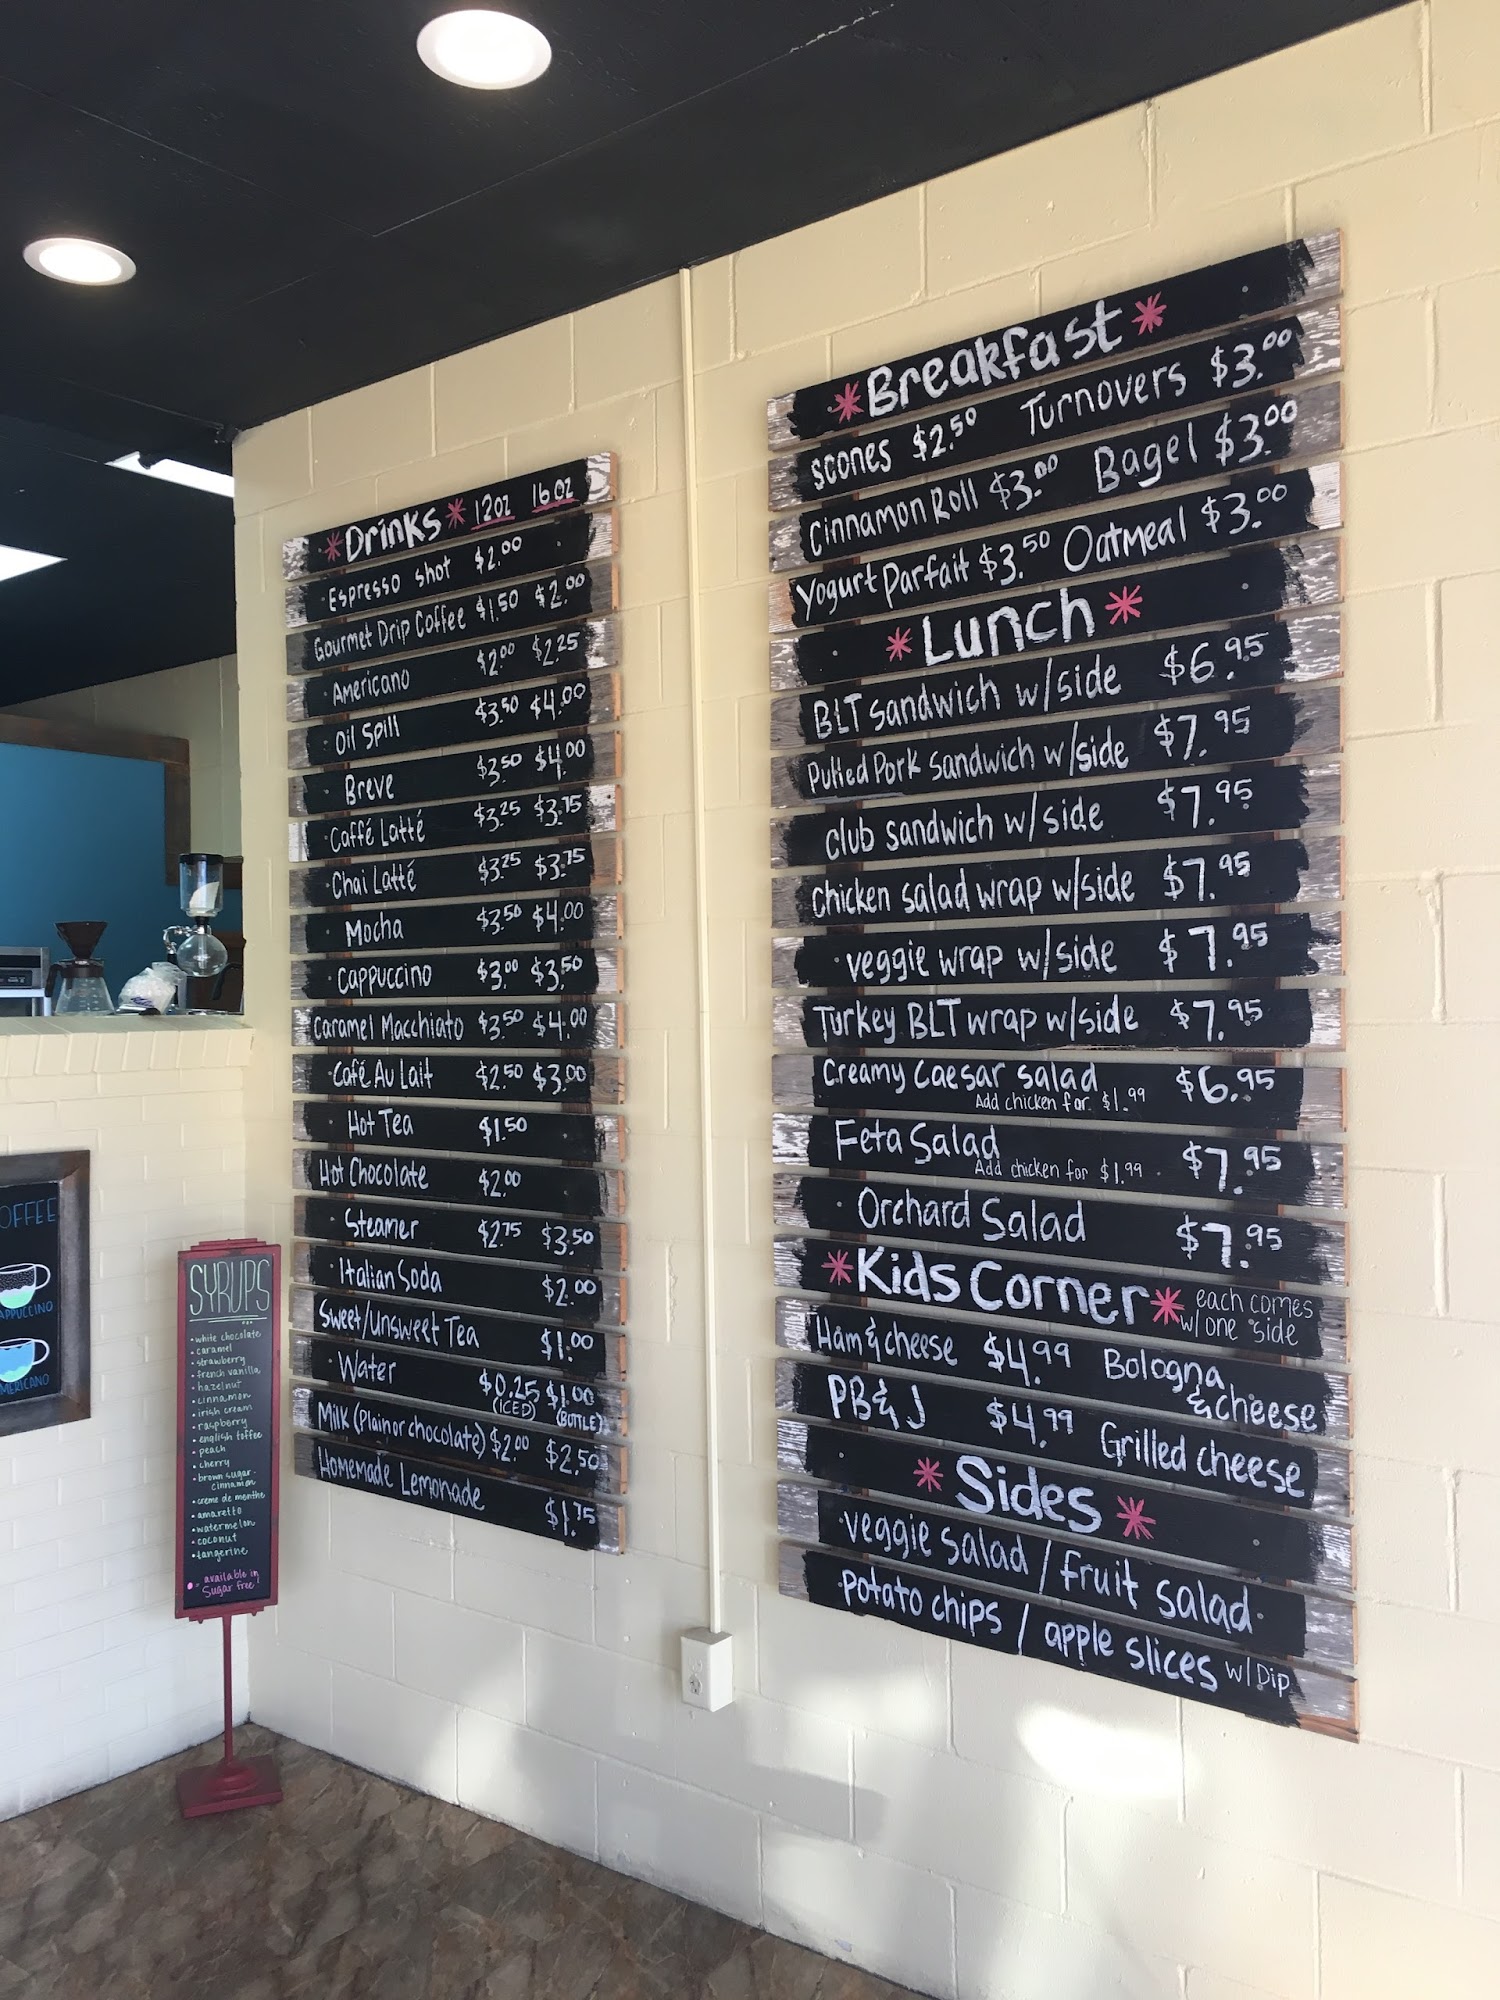 *Drinks* 12oz 16oz
Espresso shot $2.00
Gourmet Drip Coffee $1.50 $2.00
Americano $2.00 $2.25
Oil Spill $3.50 $4.00
Breve $3.50 $4.00
Caffé Latté $3.25 $3.75
Chai Latté $3.25 $3.75
Mocha $3.50 $4.00
Cappuccino $3.00 $3.50
Caramel Macchiato $3.50 $4.00
Café Au Lait $2.50 $3.00
Hot Tea $1.50
Hot Chocolate $2.00
Steamer $2.75 $3.50
Italian Soda $2.00
Sweet/Unsweet Tea $1.00
Water $0.25 $1.00
(ICED) (BOTTLE)
Milk (Plain or chocolate) $2.00 $2.50
Homemade Lemonade $1.75
*Breakfast*
scones $2.50 Turnovers $3.00
Cinnamon Roll $3.00 Bagel $3.00
Yogurt Parfait $3.50 Oatmeal $3.00
*Lunch*
BLT sandwich w/side $6.95
Pulled Pork sandwich w/side $7.95
club sandwich w/side $7.95
chicken salad wrap w/side $7.95
veggie wrap w/side $7.95
Turkey BLT wrap w/side $7.95
Creamy Caesar salad $6.95
Add chicken for $1.99
Feta Salad $7.95
Add chicken for $1.99
Orchard Salad $7.95
*Kids Corner* each comes
w/one side
Ham & cheese $4.99 Bologna
& cheese
PB & J $4.99 Grilled cheese
*Sides*
veggie salad / fruit salad
potato chips / apple slices w/Dip
SYRUPS
• white chocolate
• caramel
• strawberry
• french vanilla
• hazelnut
• cinnamon
• irish cream
• raspberry
• english toffee
• peach
• cherry
• brown sugar-
cinnamon
• creme de menthe
• amaretto
• watermelon
• coconut
• tangerine
• available in
sugar free!
OFFEE
APPUCCINO
MERICANO